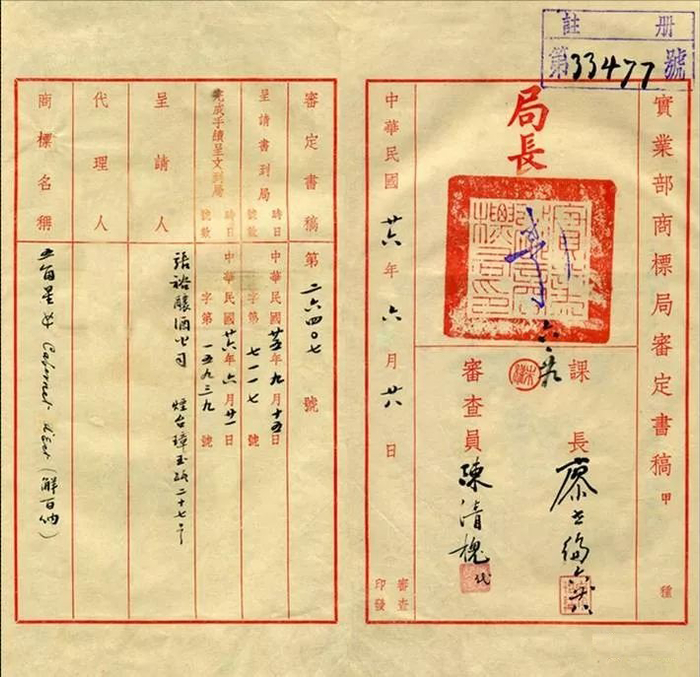 註册
第33477號
實業部商標局審定書稿甲種
局長
課長
審查員 陳清槐 代
中華民國廿六年六月廿八日
審查
印發
審定書稿 第二六四〇七號
呈請書到局 時日 中華民國廿五年九月十五日
號數 字第七一一七號
完成手續呈文到局 時日 中華民國廿六年六月廿一日
號數 字第一五九三九號
呈請人 張裕釀酒公司 煙台璋玉路二十七号
代理人
商標名稱 五角星 Cabernet (解百納)